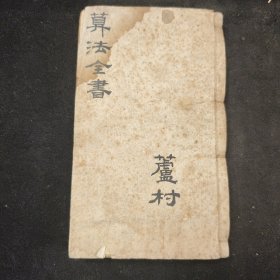 算法全書
蘆村